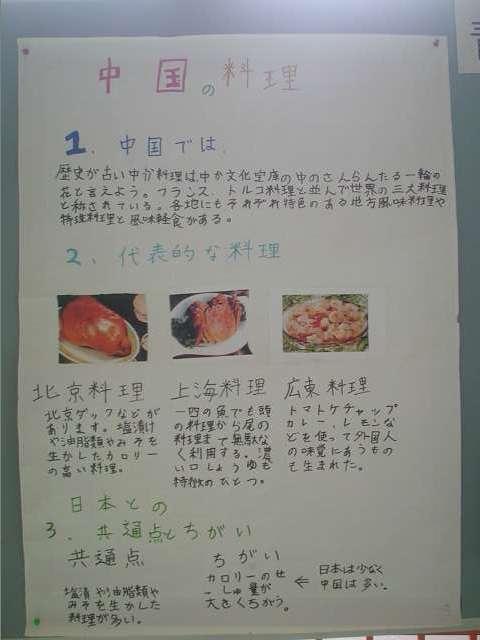 中国の料理
1. 中国では、
歴史が古い中か料理は中か文化宝庫の中のさんらんたる一輪の
花と言えよう。フランス、トルコ料理と並んで世界の三大料理
と称されている。各地にもそれぞれ特色のある地方風味料理や
特殊料理と風味軽食がある。
2、代表的な料理
北京料理
北京ダックなどが
あります。塩漬け
や油脂類やみそを
生かしたカロリー
の高い料理。
上海料理
一匹の魚でも頭
の料理から尾の
料理まで無駄な
く利用する。濃
い口しょうゆも
特徴のひとつ。
広東料理
トマトケチャップ
カレー、レモンな
どを使って外国人
の味覚にあうもの
も生まれた。
日本との
3. 共通点とちがい
共通点
塩漬や油脂類や
みそを生かした
料理が多い。
ちがい
カロリーのせ
っしゅ量が
大きくちがう。
← 日本は少なく
中国は多い。